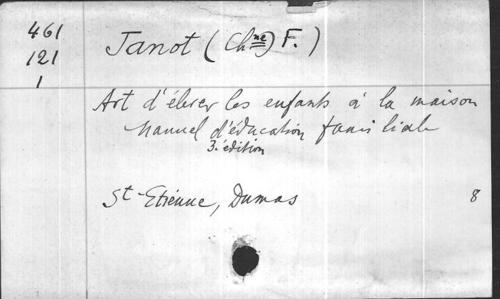 461
121
1
Janot (Chne) F.)
Art d'élever les enfants à la maison
Manuel d'éducation familiale
3e édition
St-Etienne, Dumas
8